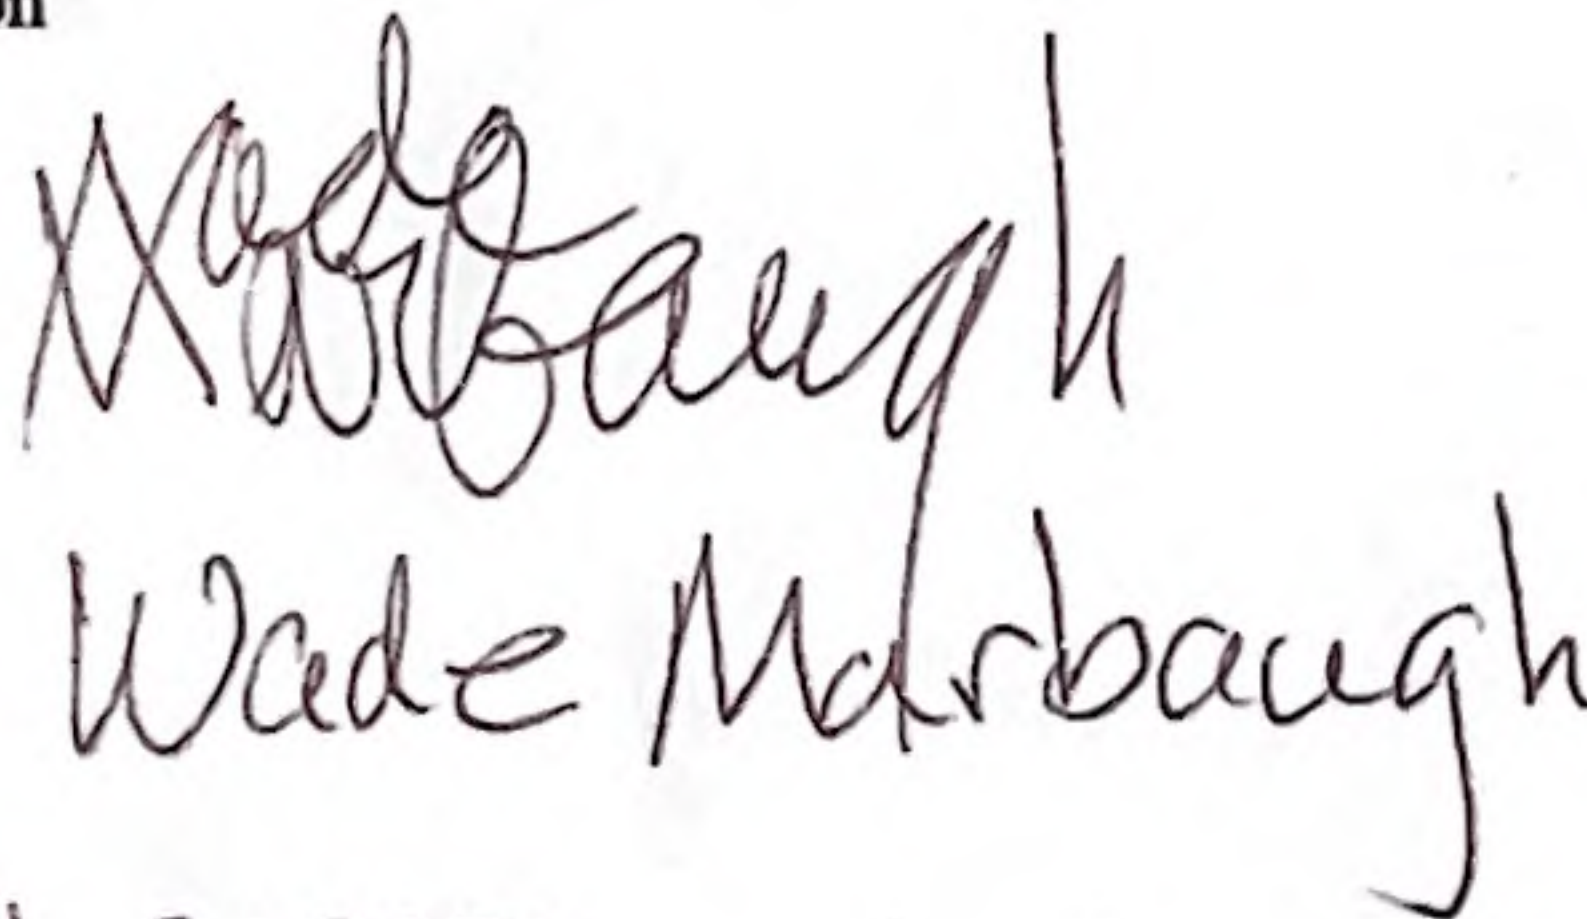 on
Wade Marbaugh
Wade Marbaugh